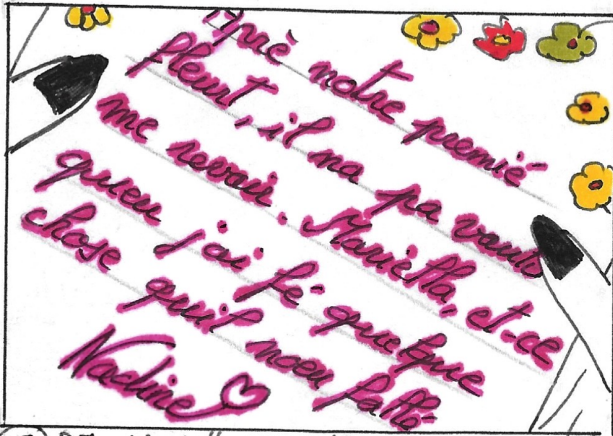 Aprè notre premié
fleurt, il ma pa voulu
me revoir. Marietta, et-ce
queu j'ai fé quelque
chose quil meu fallé
Nadine